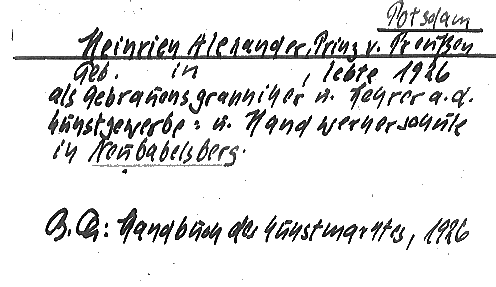 Potsdam
Heinrich Alexander, Prinz v. Preußen
Geb. in , lebte 1926
als Gebrauchsgraphiker u. Lehrer a. d.
Kunstgewerbe = u. Handwerkerschule
in Neubabelsberg.
B. Qu: Handbuch des Kunstmarktes, 1926